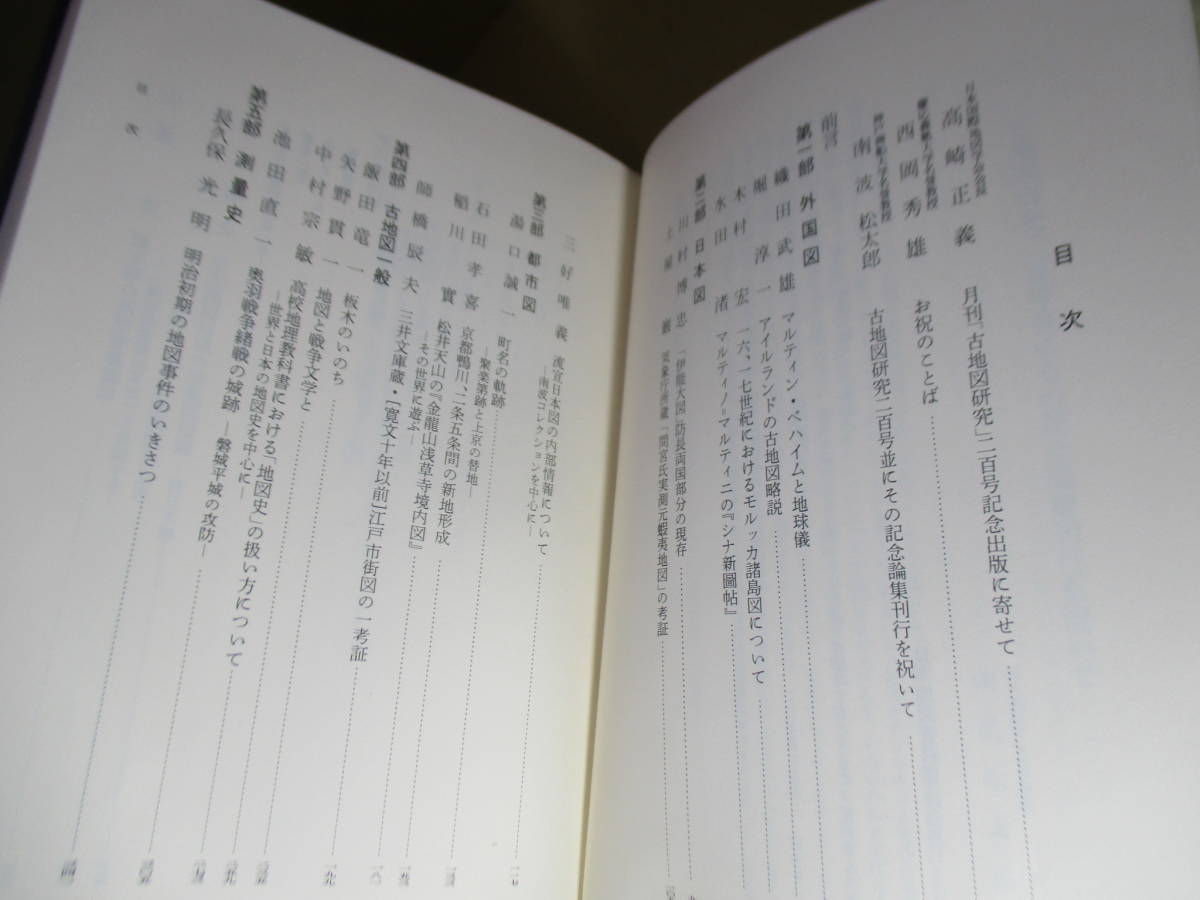 目次
日本国際地図学会会長
高崎正義 月刊「古地図研究」二百号記念出版に寄せて
慶応義塾大学名誉教授
西岡秀雄 お祝のことば
神戸商船大学名誉教授
南波松太郎 古地図研究二百号並にその記念論集刊行を祝いて
前言
第一部 外国図
織田武雄 マルティン・ベハイムと地球儀
堀淳一 アイルランドの古地図略説
木村宏 一六、一七世紀におけるモルッカ諸島図について
水田渚 マルティノ=マルティニの『シナ新圖帖』
第二部 日本図
川村博忠 「伊能大図」防長両国部分の現存
気象庁所蔵「間宮氏実測元蝦夷地図」の考証
三好唯義 流宣日本図の内部情報について
―南波コレクションを中心に―
第三部 都市図
湯口誠一 町名の軌跡
―聚楽第跡と上京の替地―
石田孝喜 京都鴨川、二条五条間の新地形成
稲川實 松井天山の『金龍山浅草寺境内図』
―その世界に遊ぶ―
師橋辰夫 三井文庫蔵・[寛文十年以前]江戸市街図の一考証
第四部 古地図一般
飯田竜一 板木のいのち
矢野貫一 地図と戦争文学と
中村宗敏 高校地理教科書における「地図史」の扱い方について
―世界と日本の地図史を中心に―
池田直一 奥羽戦争緒戦の城跡 ―磐城平城の攻防―
第五部 測量史
長久保光明 明治初期の地図事件のいきさつ
目次